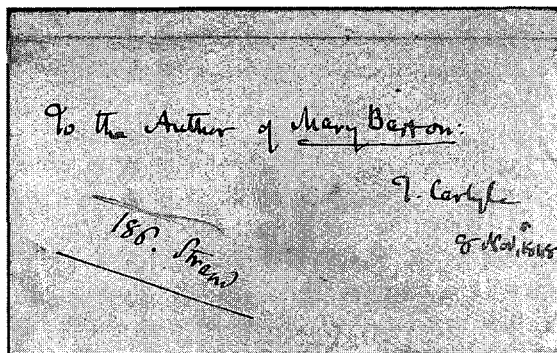 To the Author of Mary Barton:
T. Carlyle
8 Nov, 1848
186. Strand